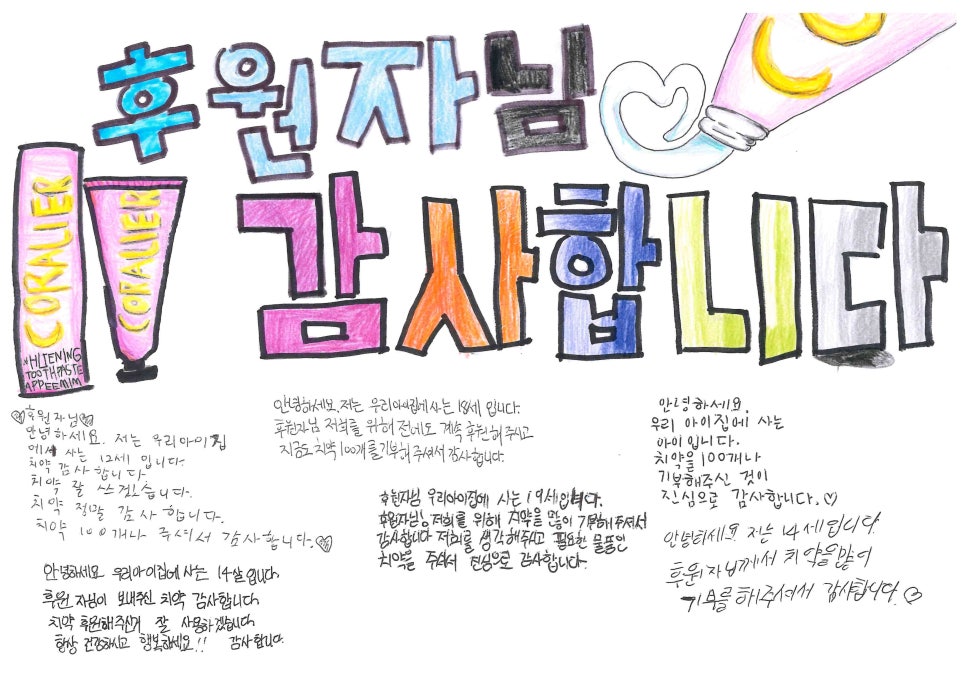 후원자님
감사합니다
CORALIER
WHLTENING
TOOTHPASTE
APPEEMIM
CORALIER
후원자님
안녕하세요. 저는 우리아이집
에서 사는 12세 입니다.
치약 감사합니다
치약 잘 쓰겠습니다.
치약 정말 감사합니다.
치약 100개나 주셔서 감사합니다.
안녕하세요 우리아이집에 사는 14살입니다
후원자님이 보내주신 치약 감사합니다
치약 후원해주신거 잘 사용하겠습니다
항상 건강하시고 행복하세요!! 감사합니다.
안녕하세요. 저는 우리아이집에 사는 18세 입니다.
후원자님 저희를 위해 전에도 계속 후원해 주시고
지금도 치약 100개를 기부해 주셔서 감사합니다.
후원자님 우리아이집에 사는 19세입니다.
후원자님, 저희를 위해 치약을 많이 기부해주셔서
감사합니다 저희를 생각해주시고 필요한 물품인
치약을 주셔서 진심으로 감사합니다.
안녕하세요.
우리 아이집에 사는
아이입니다.
치약을 100개나
기부해주신 것이
진심으로 감사합니다.
안녕하세요 저는 14세입니다
후원자님께서 치약을많이
기부를해주셔서 감사합니다.